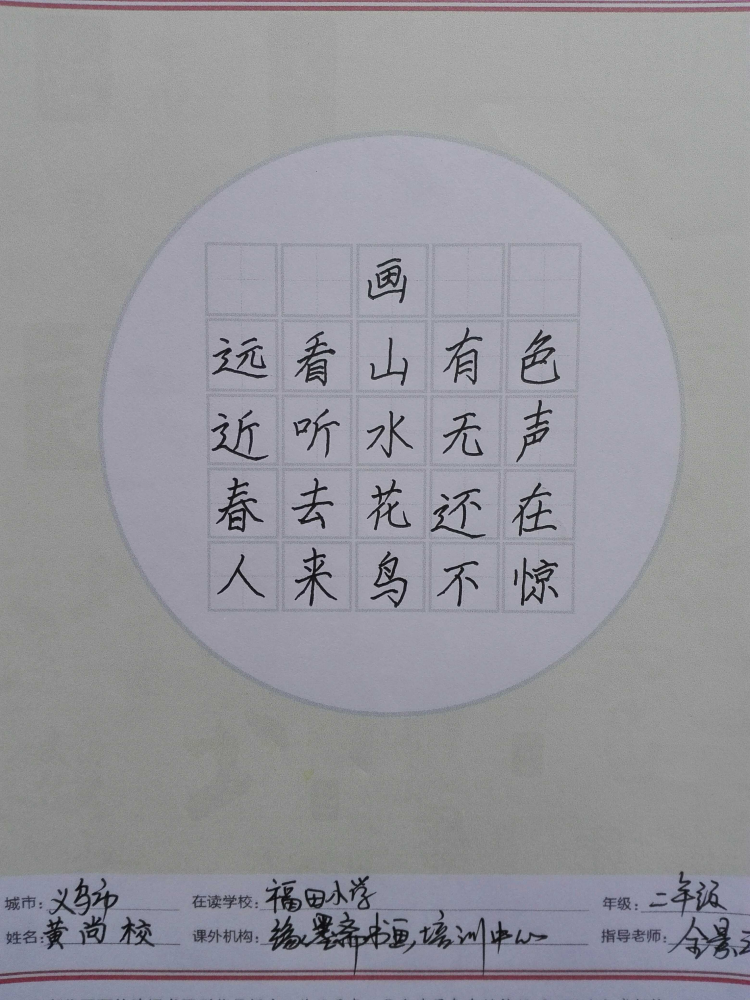 画
远看山有色
近听水无声
春去花还在
人来鸟不惊
城市：义乌市 在读学校：福田小学 年级：二年级
姓名：黄尚校 课外机构：缘墨斋书画培训中心 指导老师：金景